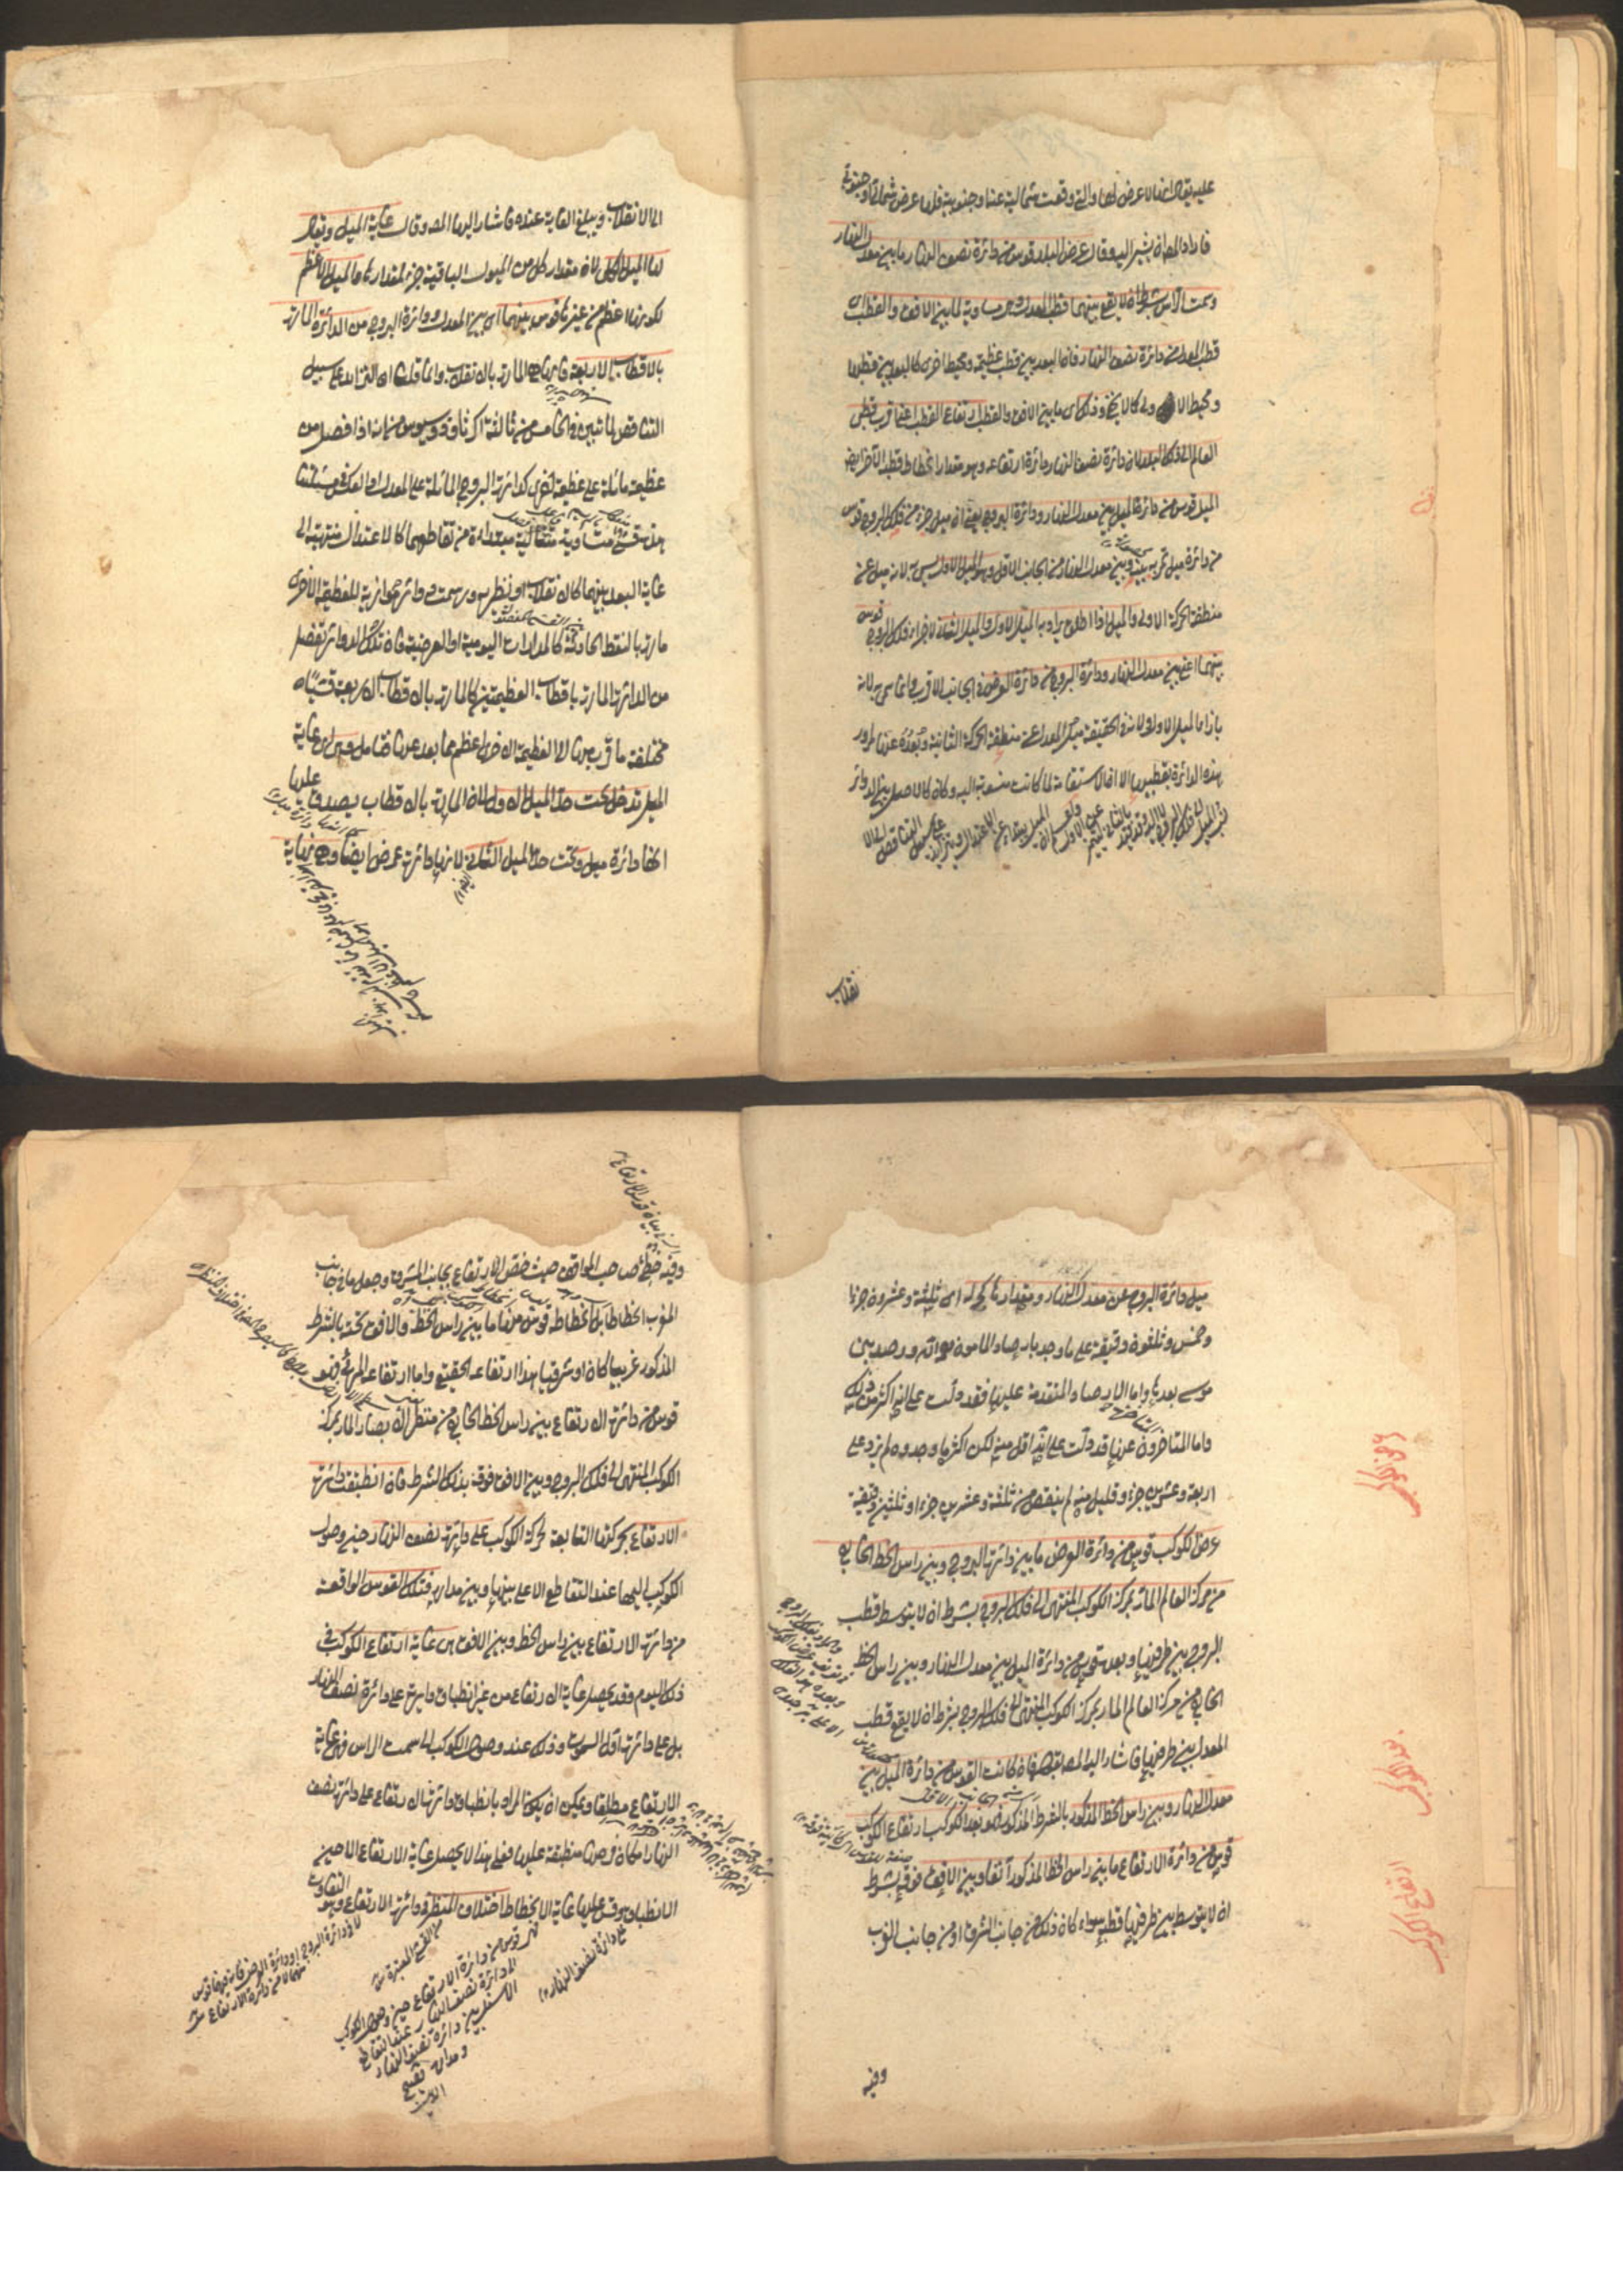 عليه يقال انها لا عرض لها والتي وقعت شمالية عنه او جنوبية فلها عرض شمالي او جنوبي
فاراد المص ان يشير اليه وقال عرض البلد قوس من دائرة نصف النهار ما بين معدل النهار
وسمت الراس بشرط ان لا يقع بينهما قطب المعدل وهي مساوية لما بين الافق والقطب اى
قطب المعدل من دائرة نصف النهار فان البعد بين قطب عظيمة ومحيط اخرى كالبعد بين قطبها
ومحيط الاولى كما لا يخفى وذلك اى ما بين الافق والقطب ارتفاع القطب اعنى اقرب قطبي
العالم الى ذلك البلد لان دائرة نصف النهار دائرة ارتفاعه وهو مقدار انحطاط قطبه الآخر ايضا
الميل قوس من دائرة الميل بين معدل النهار ودائرة البروج يعنى ان ميل جزء من فلك البروج قوس
من دائرة ميل تمر به بينه وبين معدل النهار من الجانب الاقل وهو الميل الاول سمى به لانه ميل عن
منطقة الحركة الاولى والميل اذا اطلق يراد به الميل الاول والميل الثانى لاجزاء فلك البروج قوس
بينهما اعنى بين معدل النهار ودائرة البروج من دائرة العرض من الجانب الاقرب وانما سمى به لانه
بازاء الميل الاول ولانه في الحقيقة ميل المعدل عن منطقة الحركة الثانية وبعده عنها لمرور
هذه الدائرة بقطبيها الا ان الاستقامة لما كانت منسوبة اليه وكانه كالاصل بين الدوائر
نسب الميل الى فلك البروج لا اليه وقد قيد بالثاني ليتميز عن الاول ولم ان الميل يبتدأ عن الاعتدال ويتزايد على سبيل التناقص الى الا
نقلاب
الى الانقلاب ويبلغ الغاية عنده فاشار اليها المص وقال غاية الميل ويقال
لها الميل الكلى لان مقدار كل من الميول الباقية جزء لمقدارها والميل الاعظم
لكونها اعظم من غيرها قوس بينهما اى بين المعدل ودائرة البروج من الدائرة المارة
بالاقطاب الاربعة فانها هي المارة بالانقلاب وانما قلنا ان التزايد على سبيل
التناقص لما تبين في الخامس من ثالثة اكر ثاوذوسيوس من انه اذا فصل من
عظيمة مائلة على عظيمة اخرى كدائرة البروج المائلة على المعدل او بالعكس في مسئلتنا
هذه قسي متساوية متتالية مبتدأة من تقاطعهما كالاعتدال منتهية الى
غاية البعد بينهما كالانقلاب او نظيره ورسمت دوائر موازية للعظيمة الاخرى
مارة بالنقط الحادثة كالمدارات اليومية او العرضية فان تلك الدوائر تفصل
من الدائرة المارة باقطاب العظيمتين كالمارة بالاقطاب الاربعة قسيا
مختلفة ما قرب منها الى العظيمة الاخرى اعظم مما بعد عنها فتامل وهى اى غاية
الميل تدخل تحت حد الميل الاول لان المارة بالاقطاب يصدق عليها
انها دائرة ميل وتحت حد الميل الثانى لانها دائرة عرض ايضا وهي نهاية
ميل دائرة البروج عن معدل النهار ومقدارها كج له اى ثلثة وعشرون جزءا
وخمس وثلثون دقيقة على ما وجد بارصاد المامون
موسى بعدها واما الارصاد المتقدمة عليها فقد دلت على انه اكثر من ذلك
واما المتاخرون عنها قد دلت على انه اقل منه لكن اكثر ما وجدوه لم يزد على
اربعة وعشرين جزء وقليل منه لم ينقص من ثلثة وعشرين جزءا وثلثين دقيقة
عرض الكوكب قوس من دائرة العرض ما بين دائرة البروج وبين راس الخط الخارج
عرض الكوكب
من مركز العالم المار بمركز الكوكب المنتهى الى فلك البروج بشرط ان لا يتوسط قطب
البروج بين طرفيها وبعده قوس من دائرة الميل بين معدل النهار وبين راس الخط
الخارج من مركز العالم المار بمركز الكوكب المنتهى الى فلك البروج بشرط ان لا يقع قطب
بعد الكوكب
المعدل بين طرفيها فاشار اليه المص بقوله فان كانت القوس من دائرة الميل بين
معدل النهار وبين راس الخط المذكور بالشرط المذكور فهو بعد الكوكب ارتفاع الكوكب
قوس من دائرة الارتفاع ما بين راس الخط المذكور آنفا وبين الافق فوقه بشرط
ارتفاع الكوكب
ان لا يتوسط بين طرفيها قطبه سواء كان ذلك من جانب الشرق او من جانب الغرب
وفيه
وفيه خطئ صاحب المواقف حيث خص الارتفاع بجانب المشرق وجعل ما في جانب
المغرب انحطاطا بل انحطاطه قوس منها ما بين راس الخط والافق تحته بالشرط
المذكور غربيا كان او شرقيا هذا ارتفاعه الحقيقي واما ارتفاعه المرئي فهو
قوس من دائرة الارتفاع بين راس الخط الخارج من منظر الابصار المار بمركز
الكوكب المنتهى الى فلك البروج وبين الافق فوقه بذلك الشرط فان انطبقت دائرة
الارتفاع بحركتها التابعة لحركة الكوكب على دائرة نصف النهار حين وصول
الكوكب اليها عند التقاطع الاعلى بينها وبين مداره فتلك القوس الواقعة
من دائرة الارتفاع بين راس الخط وبين الافق هى غاية ارتفاع الكوكب في
ذلك اليوم وقد يحصل غاية الارتفاع من غير انطباق دائرته على دائرة نصف النهار
بل على دائرة اول السموت وذلك عند وصول الكوكب الى سمت الراس فهى غاية
الارتفاع مطلقا ويمكن ان يكون المراد بانطباق دائرة الارتفاع على دائرة نصف
النهار امكان فرضها منطبقة عليها فعلى هذا لا يحصل غاية الارتفاع الا حين
الانطباق وقس عليها غاية الانحطاط اختلاف المنظر في دائرة الارتفاع وهو التفاوت
هى قوس من دائرة الارتفاع حين وصول الكوكب
الى دائرة نصف النهار عند التقاطع
الاسفل بين دائرة نصف النهار
ومداره